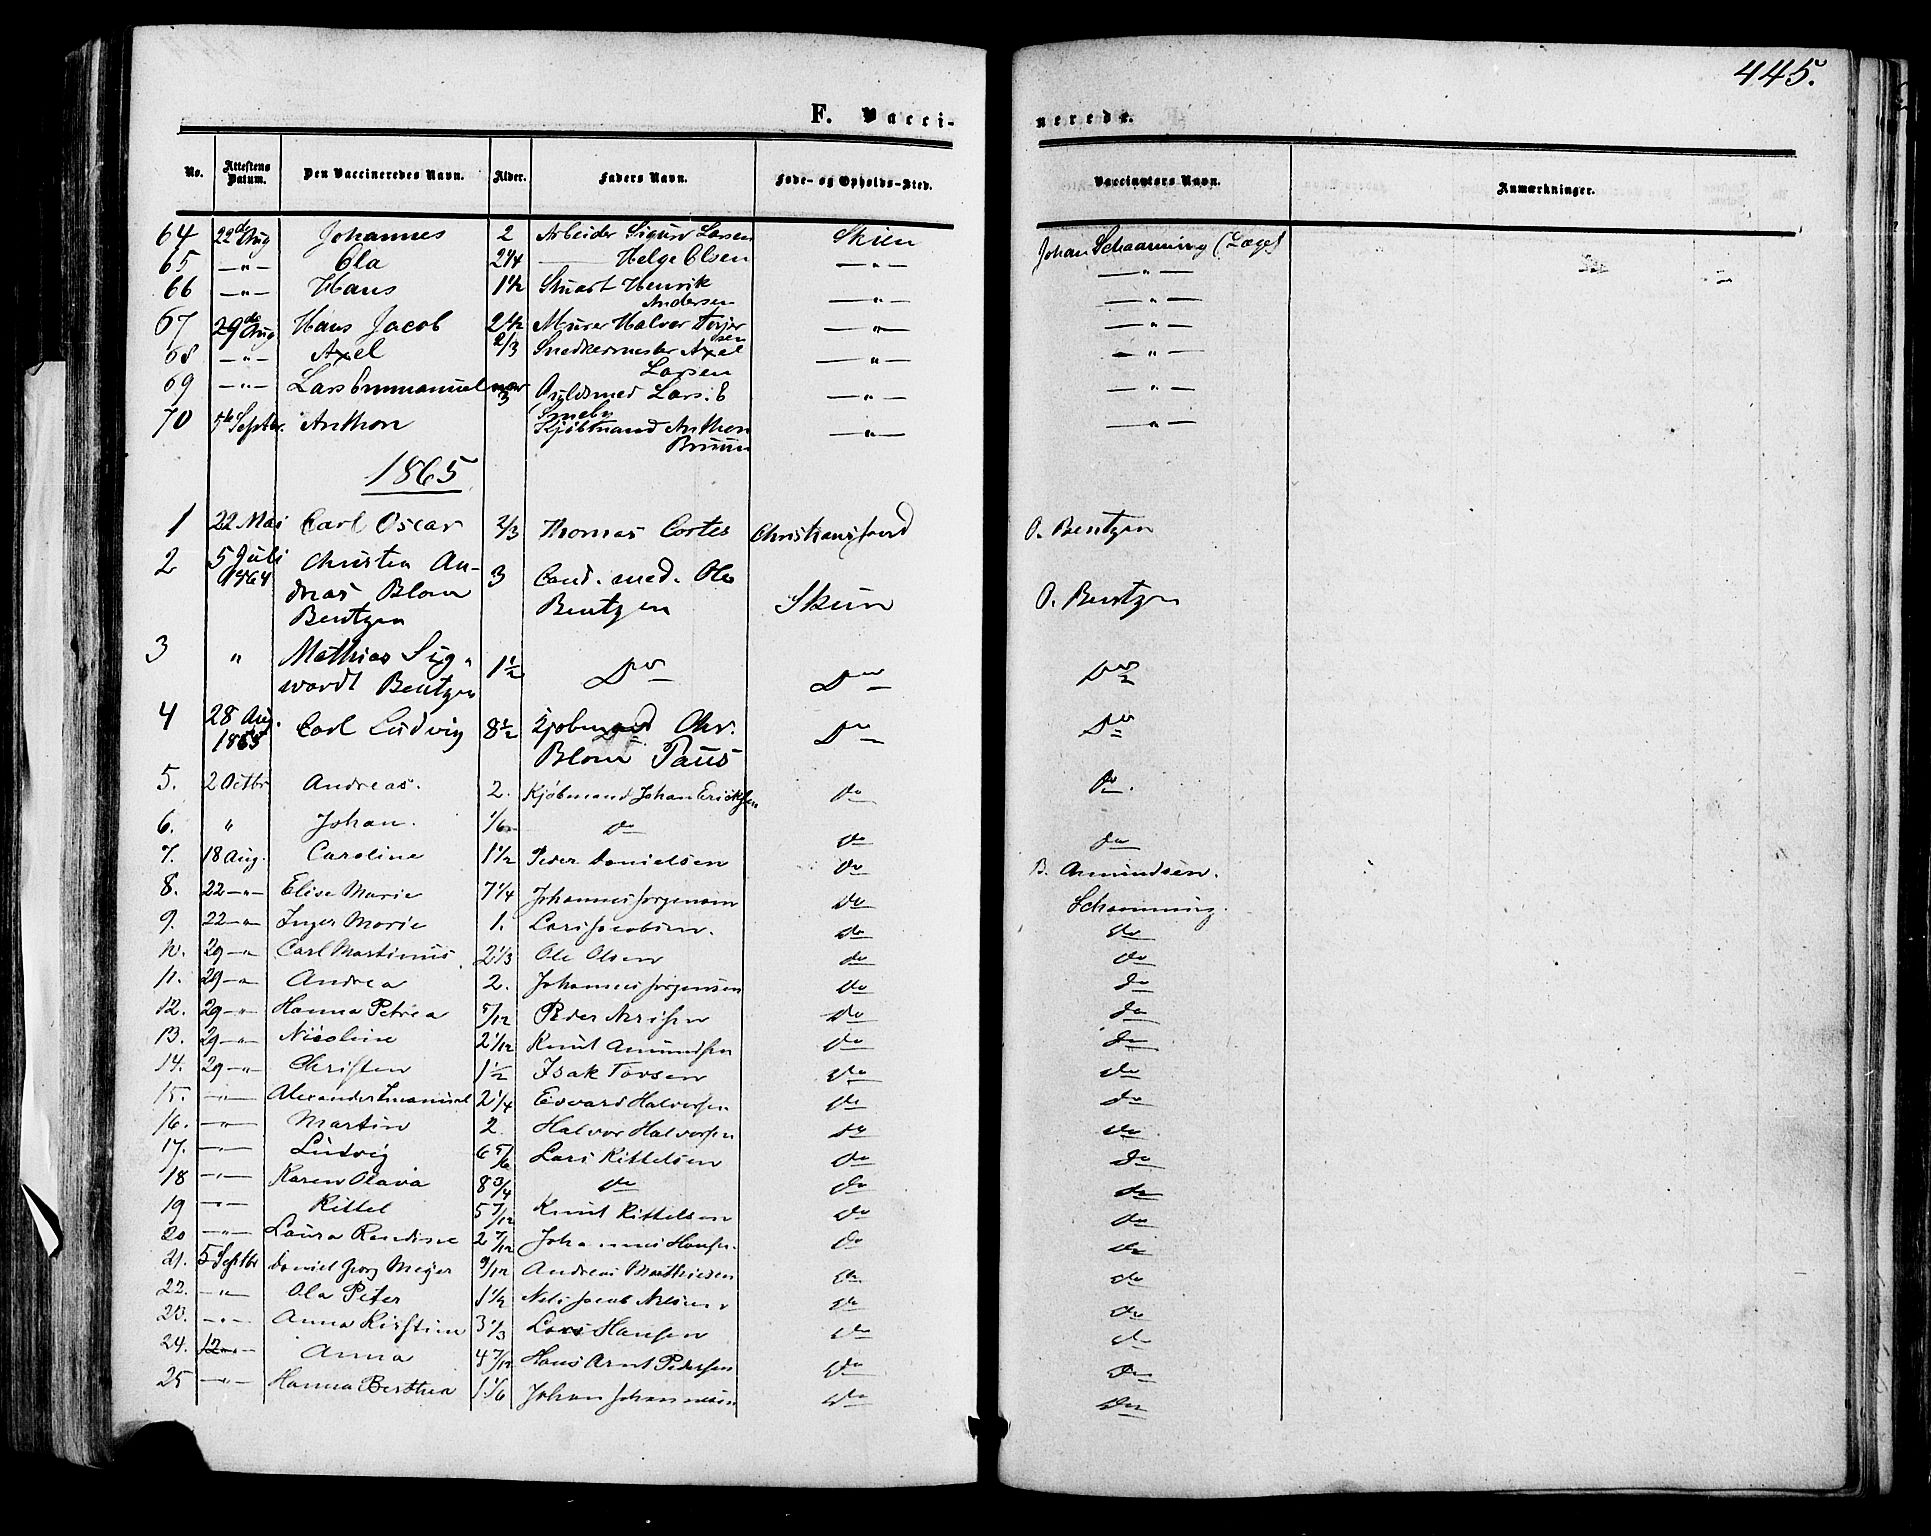 445.
F. Vacci-
nerede.
No. Attestens Datum. Den Vaccineredes Navn. Alder. Faders Navn. Føde- og Opholds-Sted. Vaccinators Navn. Anmærkninger.
64 22de Aug Johannes 2 Arbeider Sigurd Larsen Skien Johan Schaanning (Læge)
65 —"— Ola 2 1/4 —— Helge Olsen —"— —"—
66 —"— Hans 1 1/2 Stuart Henrik Andersen —"— —"—
67 29de Aug Hans Jacob 2 1/2 Murer Halvor Torjersen —"— —"—
68 —"— Axel 2/3 Snedkermester Axel Larsen —"— —"—
69 —"— Lars Emmanuel 3 Guldsmed Lars E —"— —"—
70 5te Septbr. Anthon Kjøbmand Anthon Bruun —"— —"—
1865
1 22 Mai Carl Oscar 2/3 Thomas Cortes Christiansfand O. Bentzen
2 5 Juli 1864 Christen An-
dreas Blom Bentzen 3 Cand. med. Ole Bentzen Skien O. Bentzen
3 " Mathias Sig-
wardt Bentzen 1 1/2 Do Do Do
4 28 Aug. 1865 Carl Ludvig 8 1/2 Kjøbmand Chr. Blom Paus Do Do
5. 2 Octbr Andreas. 2. Kjøbmand Johan Ericksen do do.
6. " Johan. 1/6 do do do
7. 18 Aug. Caroline 1 1/2 Peder Danielsen do B. Amundsen.
8. 22—"— Elise Marie 7 1/4 Johannes Jørgensen do Schanning.
9. 22—"— Inger Marie 1. Lars Jacobsen. do do
10. 29—"— Carl Martinius 2 1/3 Ole Olsen do do
11. 29—"— Andrea 2. Johannes Jørgensen do do
12. 29—"— Hanna Petrea 5/12 Peder do do
13. 29—"— Nicoline 2 1/12 Knut Amundsen do do
14. 29—"— Christen 1 1/2 Isak Torsen do do
15. —"— Alexander Imanuel 2 1/4 Edvard Halvorsen do do
16. —"— Martin 2. Halvor Halvorsen do do
17. —"— Ludvig 6 5/6 Lars Kittelsen do do
18 —"— Karen Olava 8 3/4 do do do
19 —"— Kittel 5 7/12 Knut Kittelsen do do
20 —"— Laura Randine 2 7/12 Johannes Hansen do do
21. 5 Septbr Daniel Georg Meyer 9/12 Andreas Mathiesen do do
22. —"— Ola Peter 1 1/2 Nels Jacob Nelsen do do
23. —"— Anna Kirstine 3 1/3 Lars Hansen do do
24. 12—"— Anna 4 7/12 Hans Arnt Pedersen do do
25 —"— Hanna Berthea 1 1/6 Johan Johannesen do do